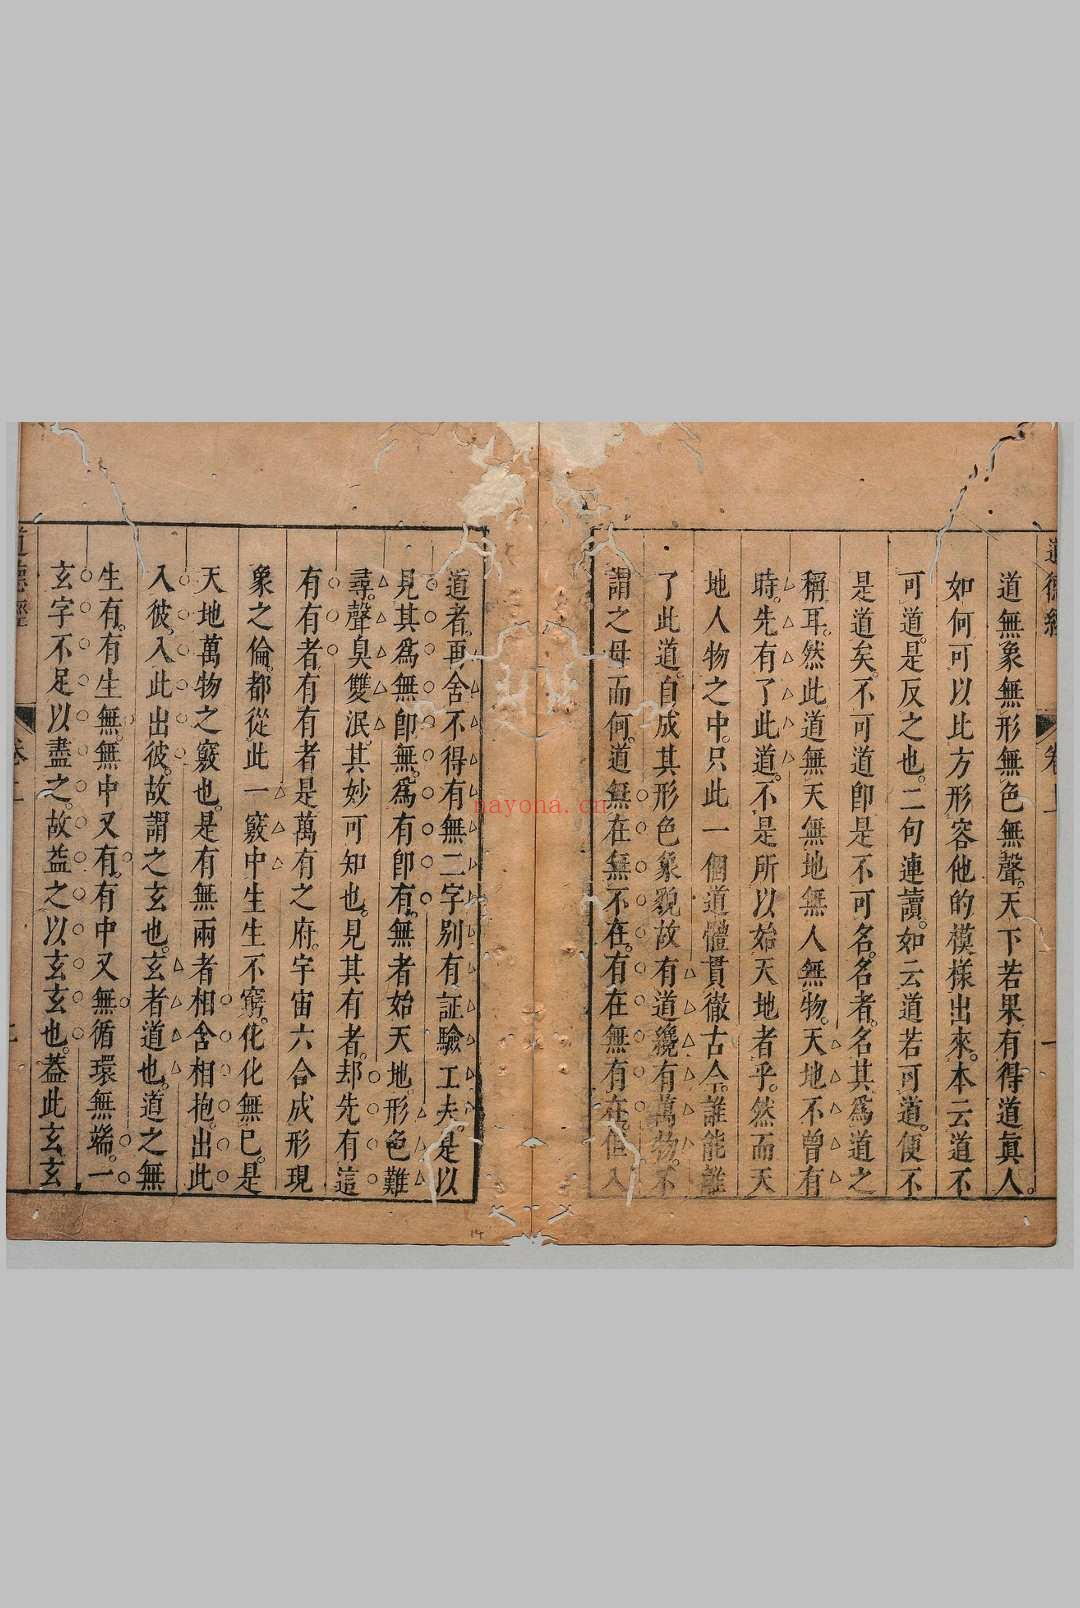 道無象無形無色無聲。天下若果有得道眞人。
如何可以比方形容他的模樣出來。本云道不
可道。是反之也。二句連讀。如云道若可道。便不
是道矣。不可道卽是不可名。名者。名其爲道之
稱耳。然此道無天無地無人無物。天地不曾有
時。先有了此道。不是所以始天地者乎。然而天
地人物之中。只此一個道體貫徹古今。誰能離
了此道。自成其形色象貌。故有道纔有萬物。不
謂之母而何。道無在無不在。有在無有在。但入
道者。再舍不得有無二字別有証驗工夫。是以
見其爲無卽無。爲有卽有。無者始天地。形色難
尋。聲臭雙泯。其妙可知也。見其有者。却先有這
有有者有有者是萬有之府。宇宙六合成形現
象之倫。都從此一竅中生生不窮。化化無已。是
天地萬物之竅也。是有無兩者相含相抱。出此
入彼。入此出彼。故謂之玄也。玄者道也。道之無
生有。有生無。無中又有。有中又無。循環無端。一
玄字不足以盡之。故益之以玄玄也。蓋此玄玄
道德經
卷上
七
nayona.cn
14